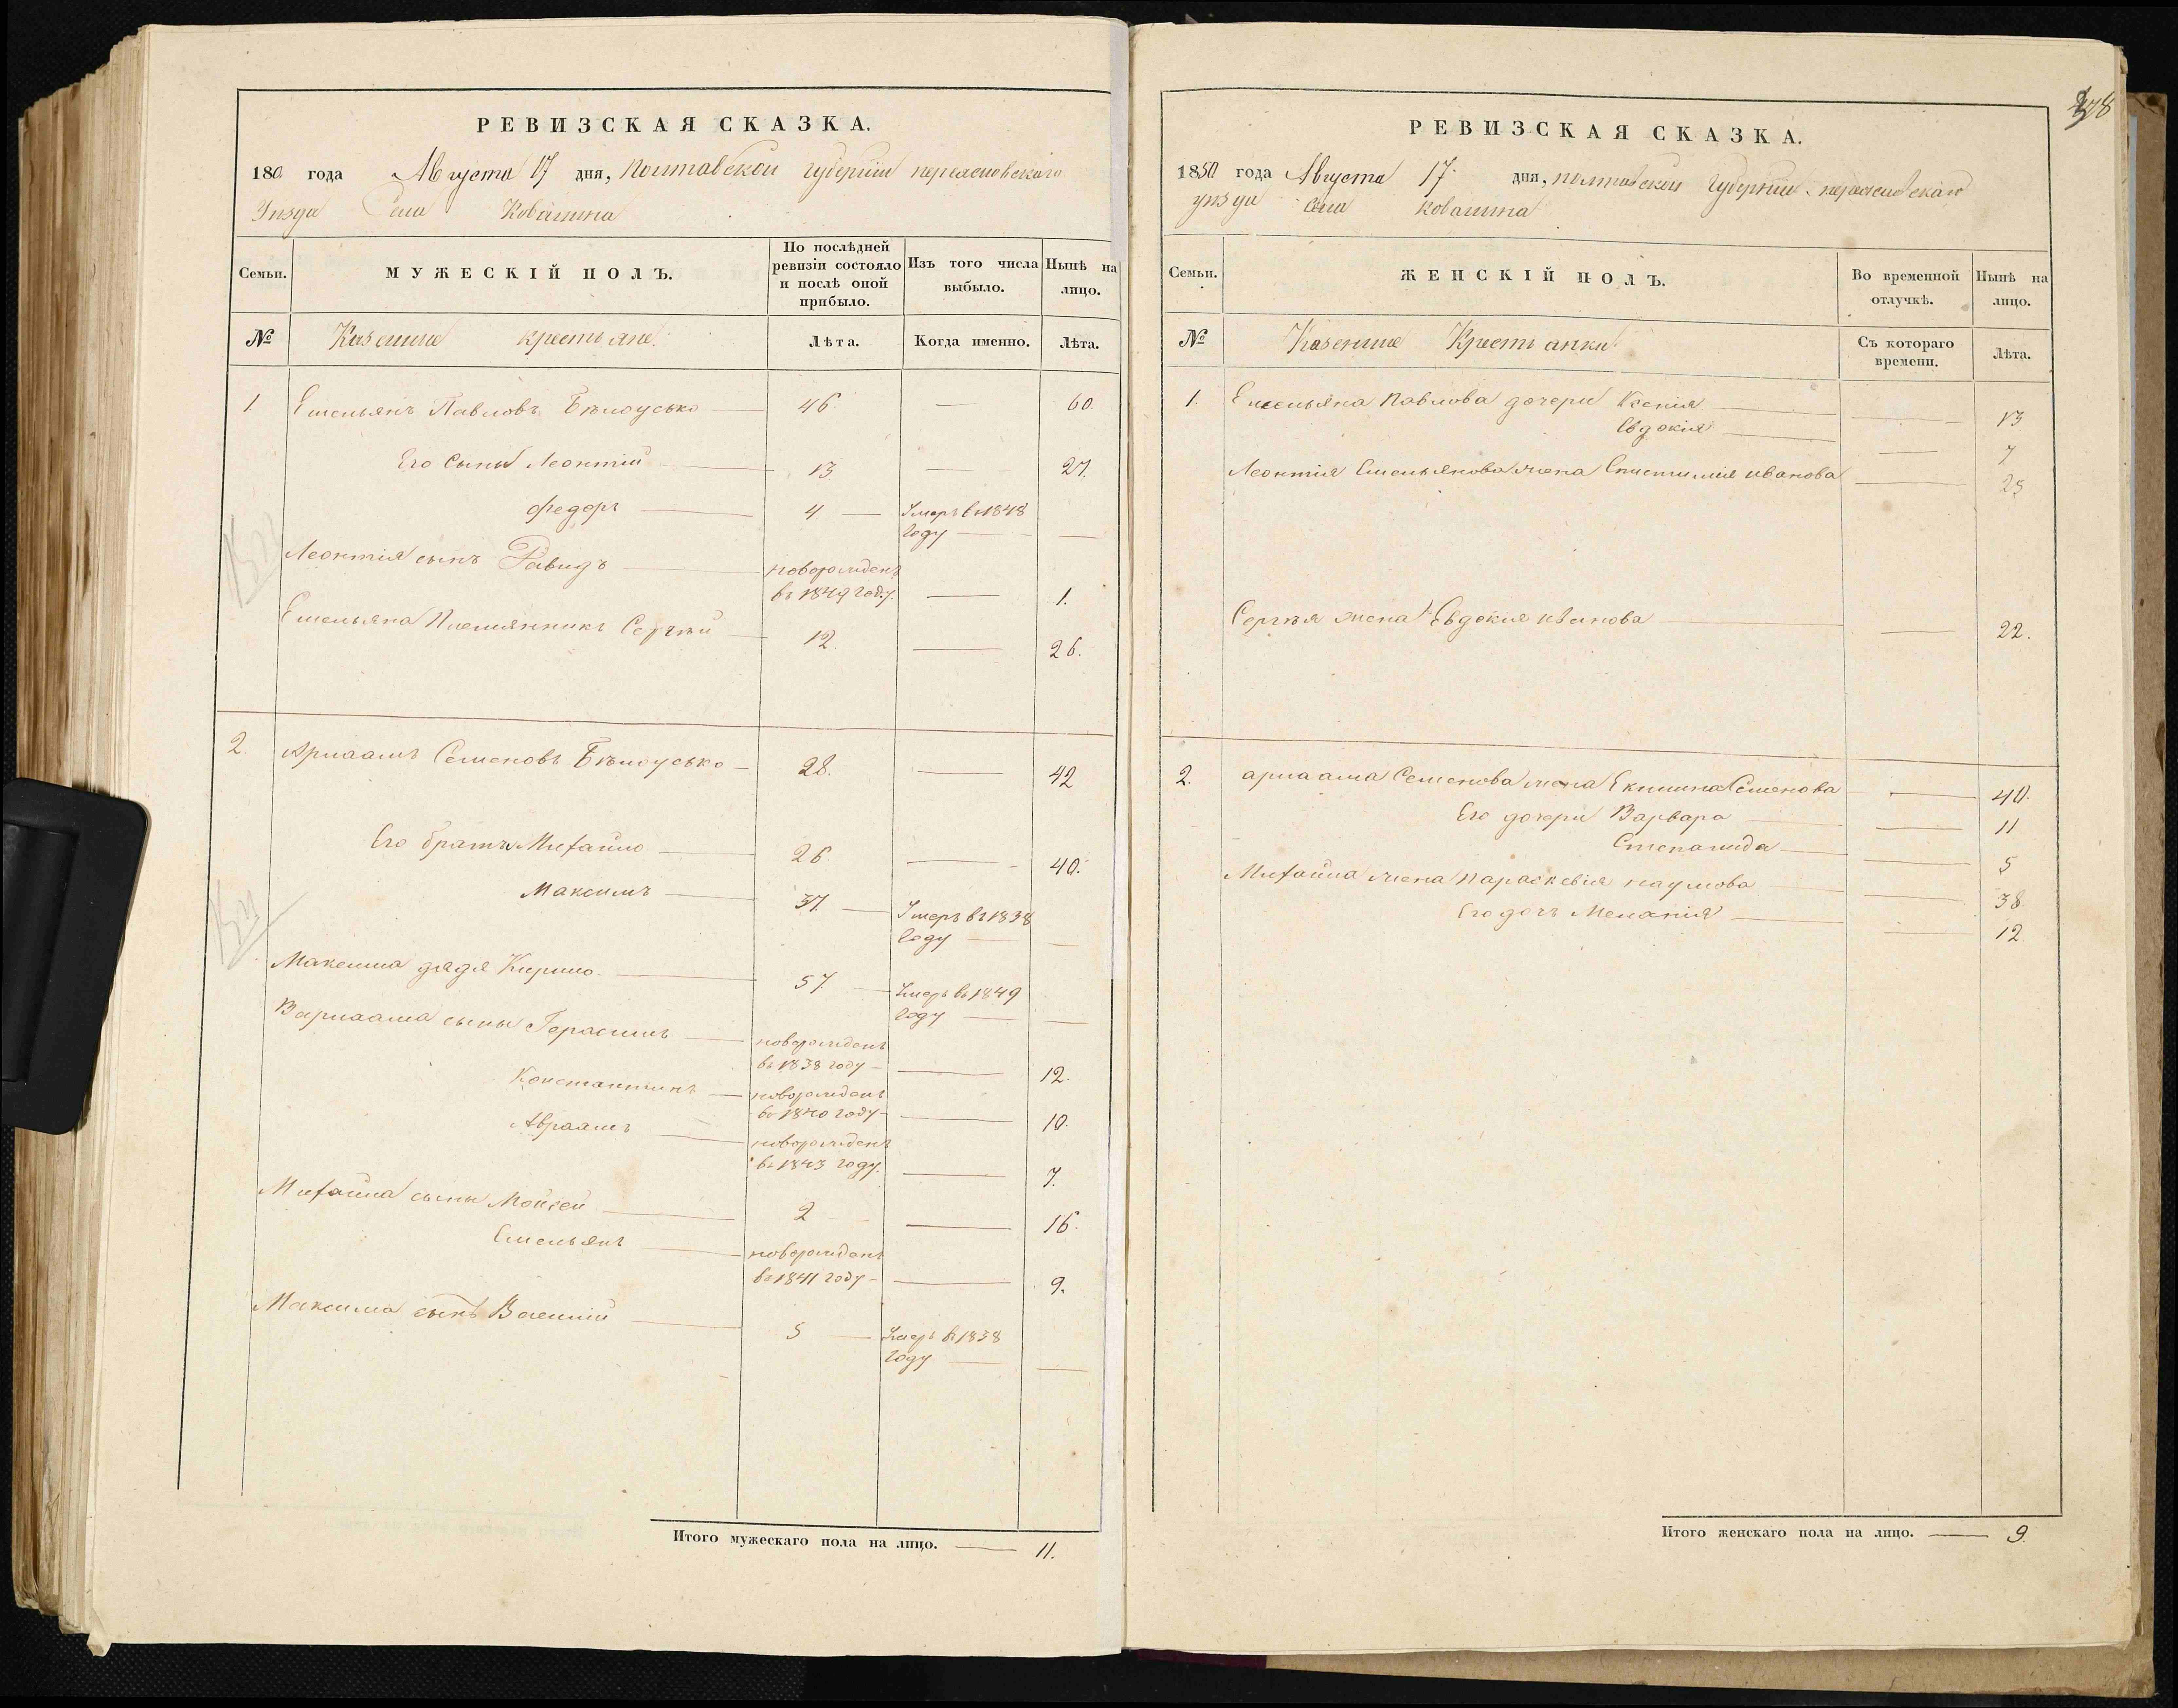 РЕВИЗСКАЯ СКАЗКА.
1850 года Августа 17 дня, Полтавской губернии переяславскаго
Уезда Села Ковалина
Семьи. МУЖЕСКІЙ ПОЛЪ. По послѣдней ревизіи состояло и послѣ оной прибыло. Изъ того числа выбыло. Нынѣ на лицо.
№ Казенные крестьяне. Лѣта. Когда именно. Лѣта.
1. Емельянъ Павловъ Бѣлоусько 46 — 60.
Его сыны Леонтій 13 — 27.
Федоръ 4 — Умеръ въ 1848
году —
Леонтія сынъ Давидъ новорожденъ
въ 1849 году. — 1.
Емельяна Племянникъ Сергѣй 12. — 26.
2. Арлаамъ Семеновъ Бѣлоусько — 28. — 42
Его братъ Михайло 26. — 40.
Максимъ 37. — Умеръ въ 1838
году —
Максима дядя Кирило 57. — Умеръ въ 1849
году —
Варлаама сыны Герасимъ новорожденъ
въ 1838 году — 12.
Константинъ — новорожденъ
въ 1840 году — 10.
Авраамъ новорожденъ
въ 1843 году. — 7.
Михайла сыны Мойсей 2 — 16.
Емельянъ новорожденъ
въ 1841 году — 9.
Максима сынъ Василій 5 — Умеръ въ 1838
году —
Итого мужескаго пола на лицо. — 11.
РЕВИЗСКАЯ СКАЗКА.
1850 года Августа 17 дня, полтавской Губерніи переяславскаго
уезда села Ковалина
Семьи. ЖЕНСКІЙ ПОЛЪ. Во временной отлучкѣ. Нынѣ на лицо.
№ Казенные Крестьянки Съ котораго времени. Лѣта.
1. Емельяна Павлова дочери Ксенія — 13
Евдокія — 7
Леонтія Емельянова жена Епистимія иванова — 25
Сергѣя жена Евдокія иванова — 22.
2. арлаама Семенова жена Екилина Семенова — 40.
Его дочери Варвара — 11
Степанида — 5
Михайла жена Параскевія наумова — 38
Его дочь Меланія — 12
Итого женскаго пола на лицо. — 9.